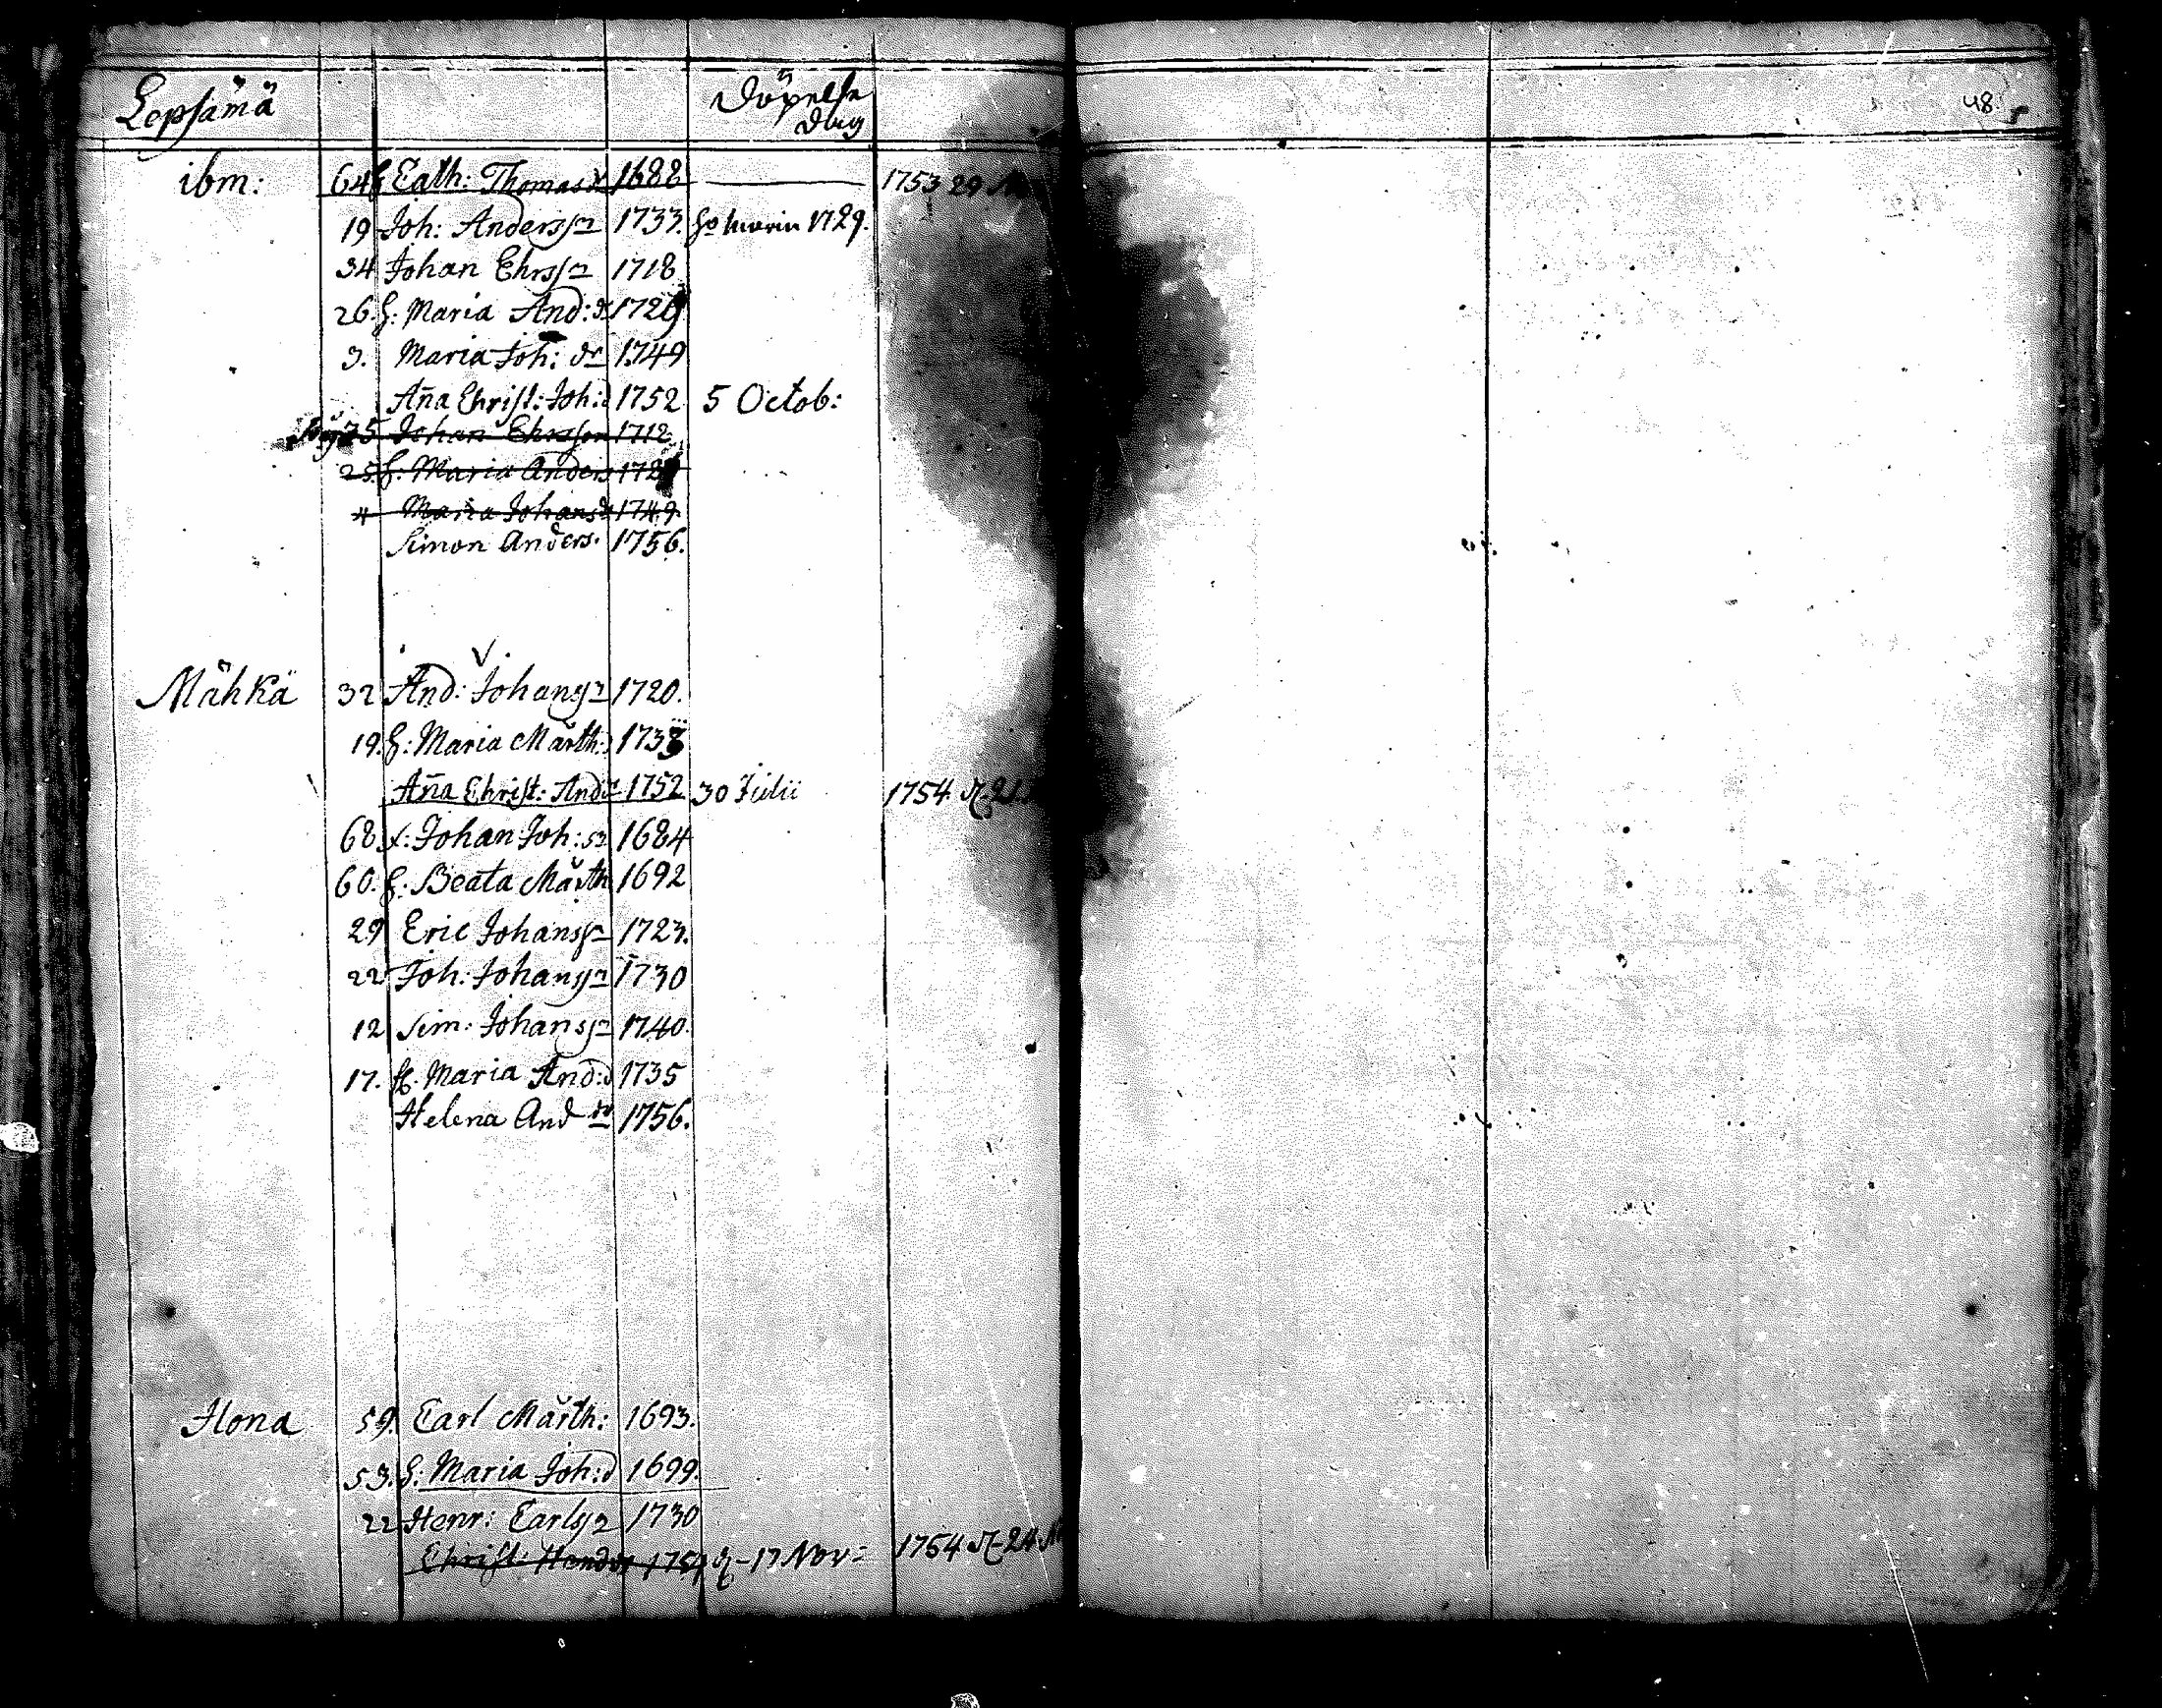 Lepsämä Döpelse
dag
48
ibm: 64 h Cath: Thomasdr 1688 1753 29
19 Joh: Anderssn 1733. 1729.
34 Johan Ehrssn 1718
26. h: Maria And: dr 1726
3. Maria Joh: dr 1749
Aña Christ: Joh: d 1752 5 Octob:
35 Johan Ehrsson 1712
25. h: Maria Anders 172
4 Maria Johansd 1749.
Simon Anders. 1756.
Mähkä 32 And: Johanssn 1720.
19. h: Maria Märth: d 1733
Aña Christ: And dr 1752 30 Julii 1754
68 x: Johan Joh: sn 1684
60. h: Beata Märth 1692
29 Eric Johanssn 1723.
22 Joh: Johanssn 1730
12 Sim: Johanssn 1740.
17. h. Maria And: d 1735
Helena And dr 1756.
Ilona 59. Carl Märth: 1693.
53. h: Maria Joh: d 1699.
22 Henr: Carlssn 1730
Christ: Hend dr 1754 17 Nov: 1754 24